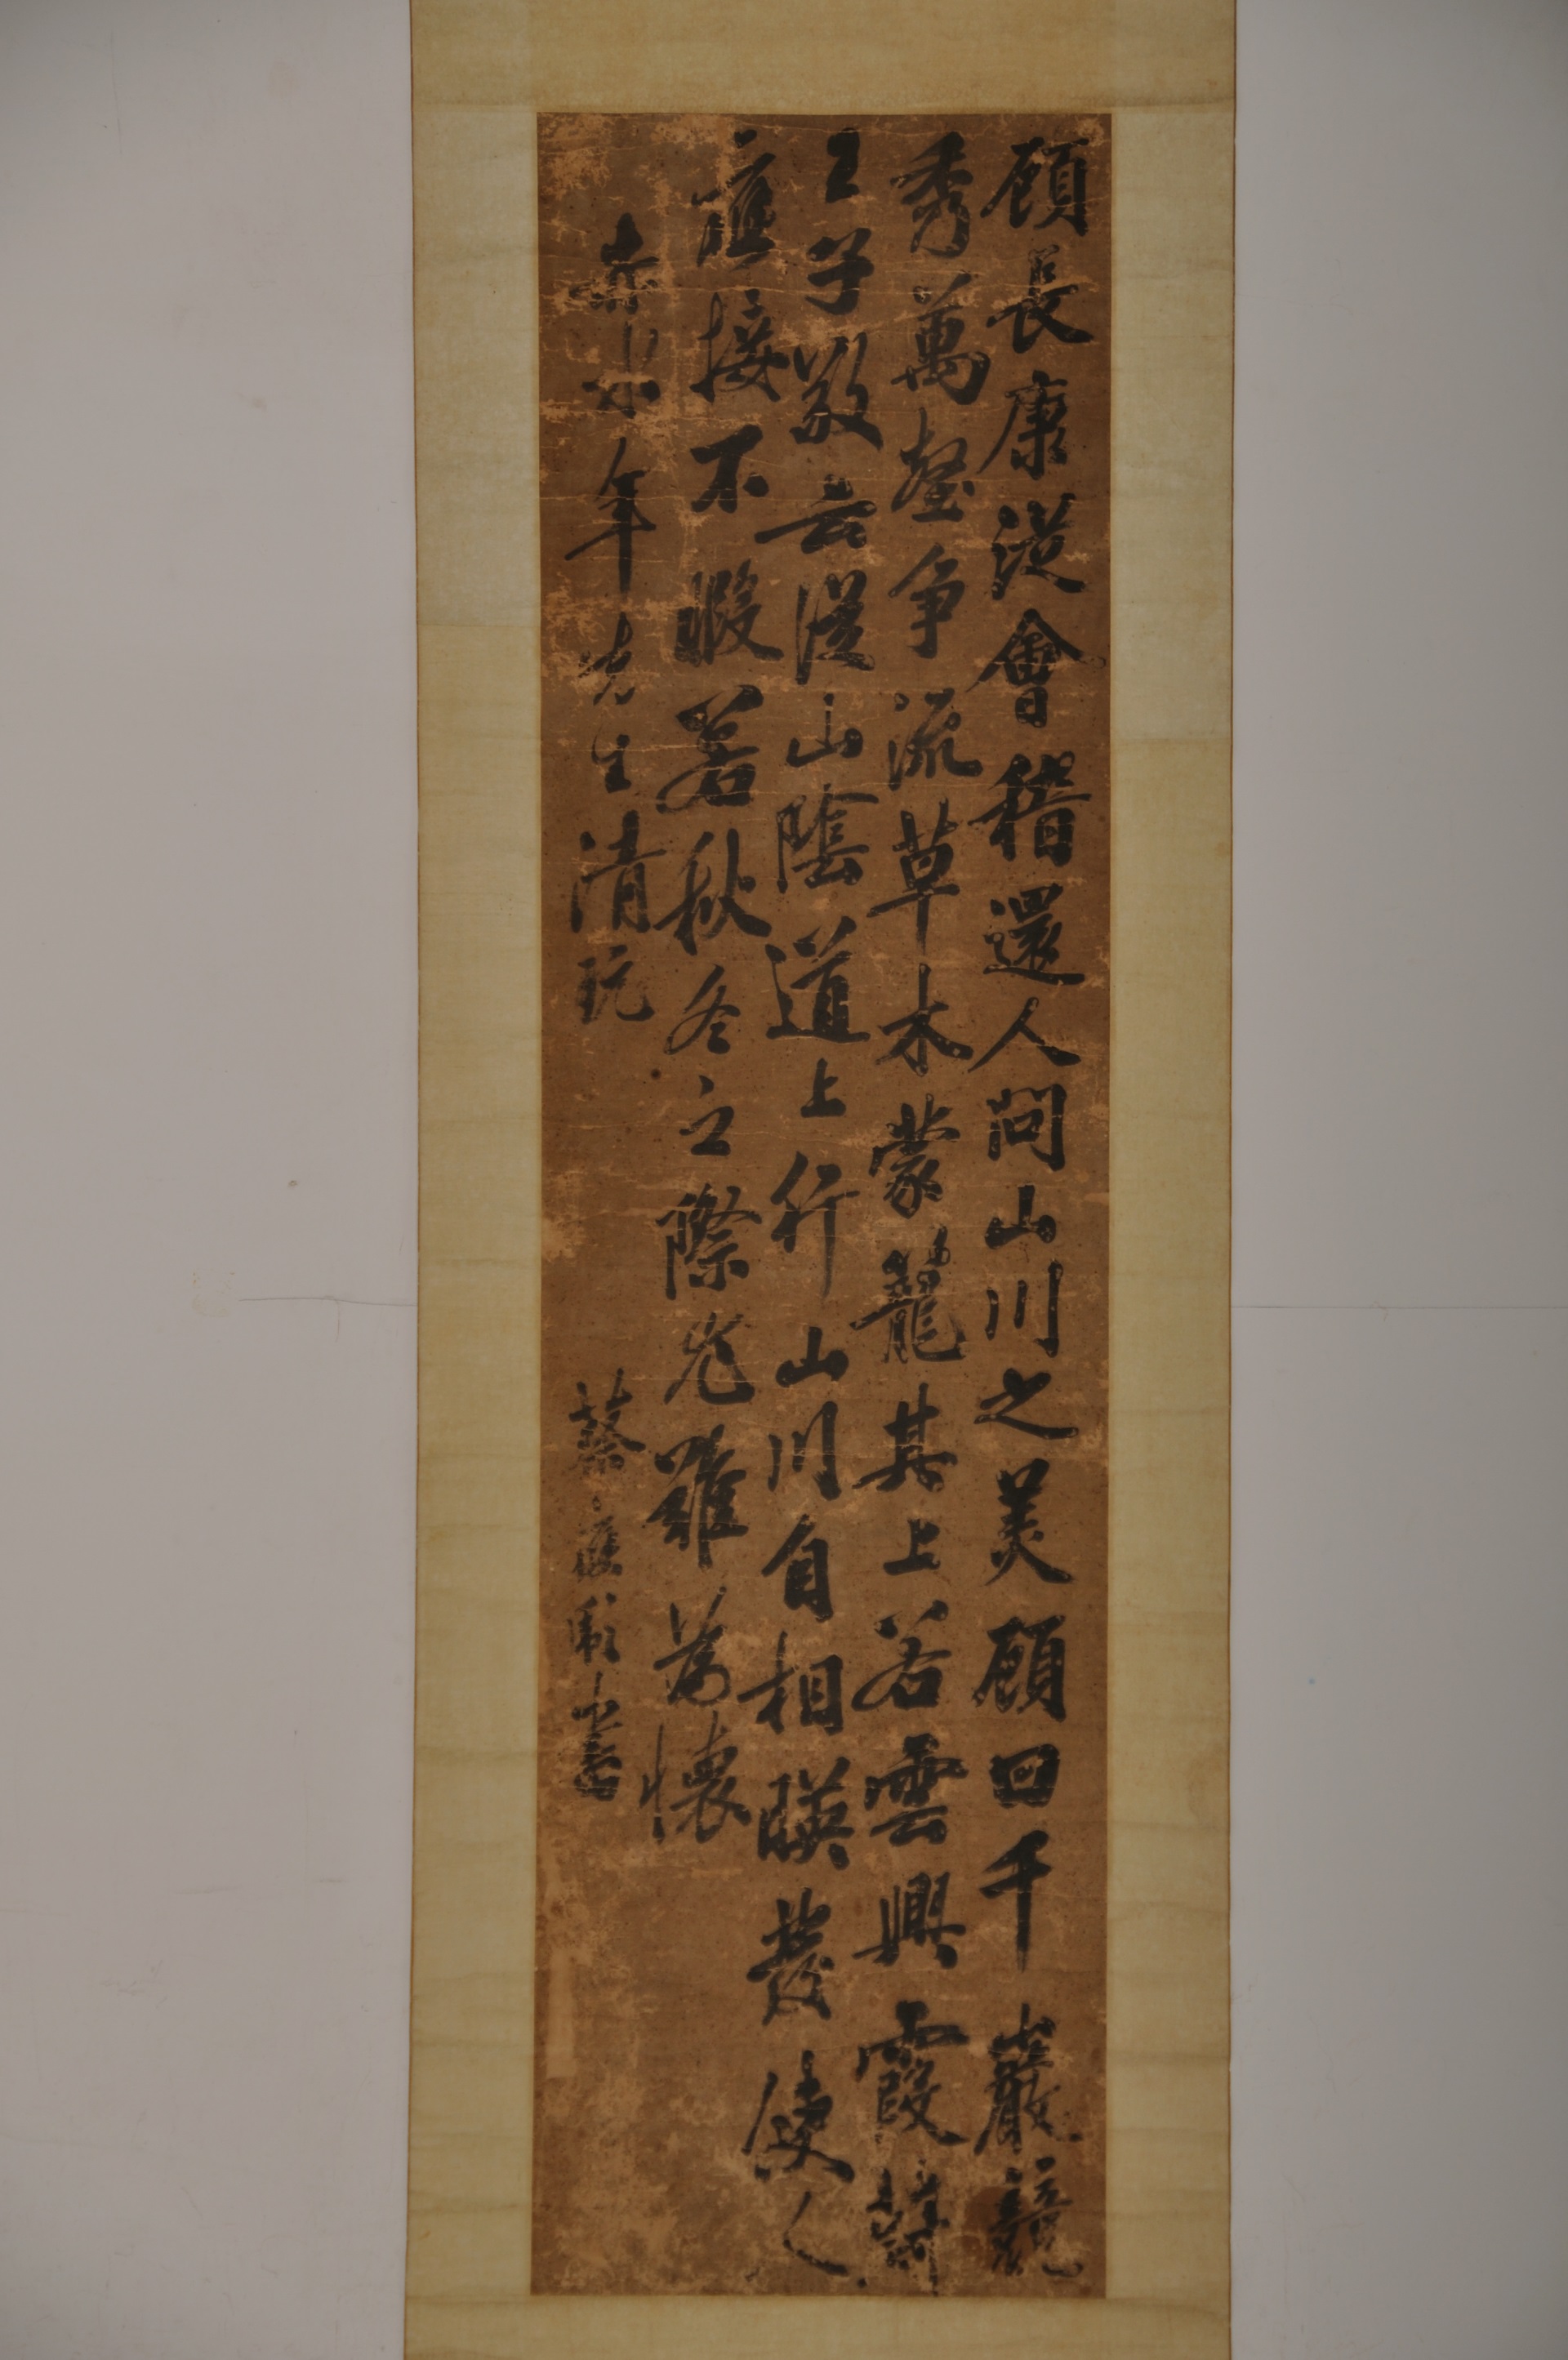 顧長康從會稽還人問山川之美顧回千巖競
秀萬壑爭流草木蒙籠其上若雲興霞蔚
王子敬云從山陰道上行山川自相暎發使人
應接不暇若秋冬之際尤難為懷
年先生清玩
蔡書